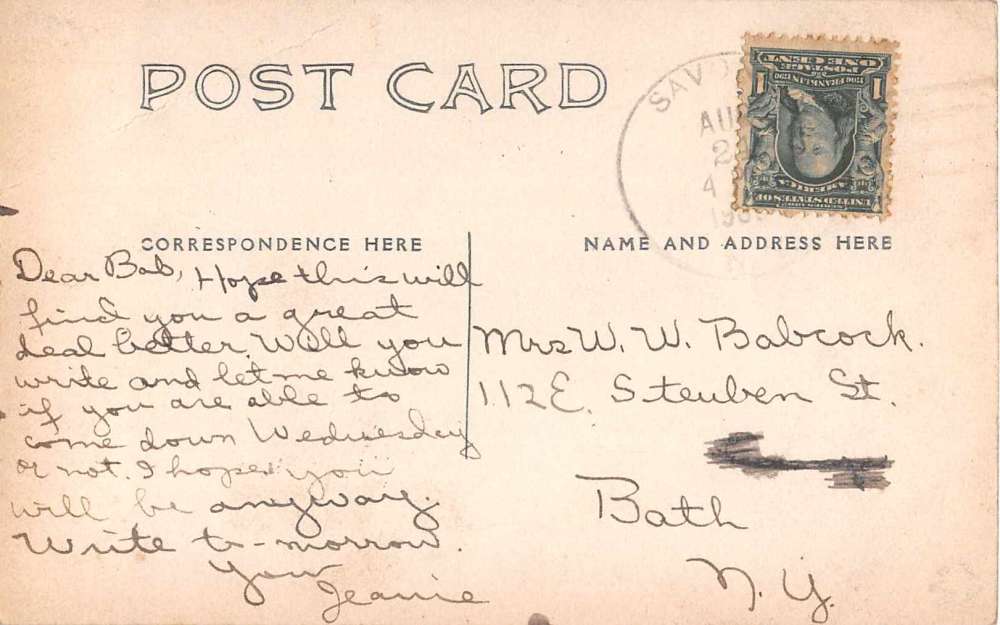 POST CARD
SAV
AU
2
4
190
ONE CENT
POSTAGE
1706 FRANKLIN 1790
1 1
SERIES 1902
UNITED STATES OF
AMERICA
CORRESPONDENCE HERE
Dear Bab, Hope this will
find you a great
deal better. Will you
write and let me know
if you are able to
come down Wednesday
or not. I hope you
will be anyway.
Write to-morrow.
Your
Jeanie
NAME AND ADDRESS HERE
Mrs W. W. Babcock.
112 E. Steuben St.
Bath
N. Y.